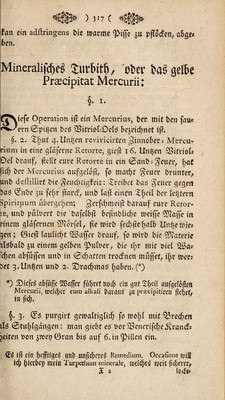 ) 317 (
kan ein adstringens die warme Pisse zu pflöcken, abge-
ben.
Mineralisches Turbith, oder das gelbe
Præcipitat Mercurii:
§. 1.
Diese Operation ist ein Mercurius, der mit den sau-
ern Spitzen des Vitriol-Oels bezeichnet ist.
§. 2. Thut 4. Untzen revivicirten Zinnober-Mercu-
rium in eine gläserne Retorte, giest 16. Untzen Vitriol-
Oel drauf, stellt eure Retorte in ein Sand-Feuer, hat
sich der Mercurius aufgelöst, so macht Feuer drunter,
und destillirt die Feuchtigkeit: Treibet das Feuer gegen
das Ende zu sehr starck, und last einen Theil der letztern
Spirituum übergehen; Zerschmeist darauf eure Retor-
te, und pülvert die daselbst befindliche weisse Massa in
einem gläsernen Mörsel, sie wird sechstehalb Untze wie-
gen: Giest laulicht Wasser drauf, so wird die Materie
alsbald zu einem gelben Pulver, die ihr mit viel Wa-
schen absüssen und in Schatten trocknen müsset, ihr wer-
det 3. Untzen und 2. Drachmas haben. (*)
*) Dieses absüsse Wasser führet noch ein gut Theil aufgelösten
Mercurii, welcher cum alkali daraus zu præcipitiren stehet,
in sich.
§. 3. Es purgirt gewaltiglich so wohl mit Brechen
als Stuhlgängen: man giebt es vor Venerische Kranck-
heiten von zwey Gran bis auf 6. in Pillen ein.
Es ist ein hefftiges und unsicheres Remedium. Occasione will
ich hierbey mein Turpethum minerale, welches weit sicherer,
X 2